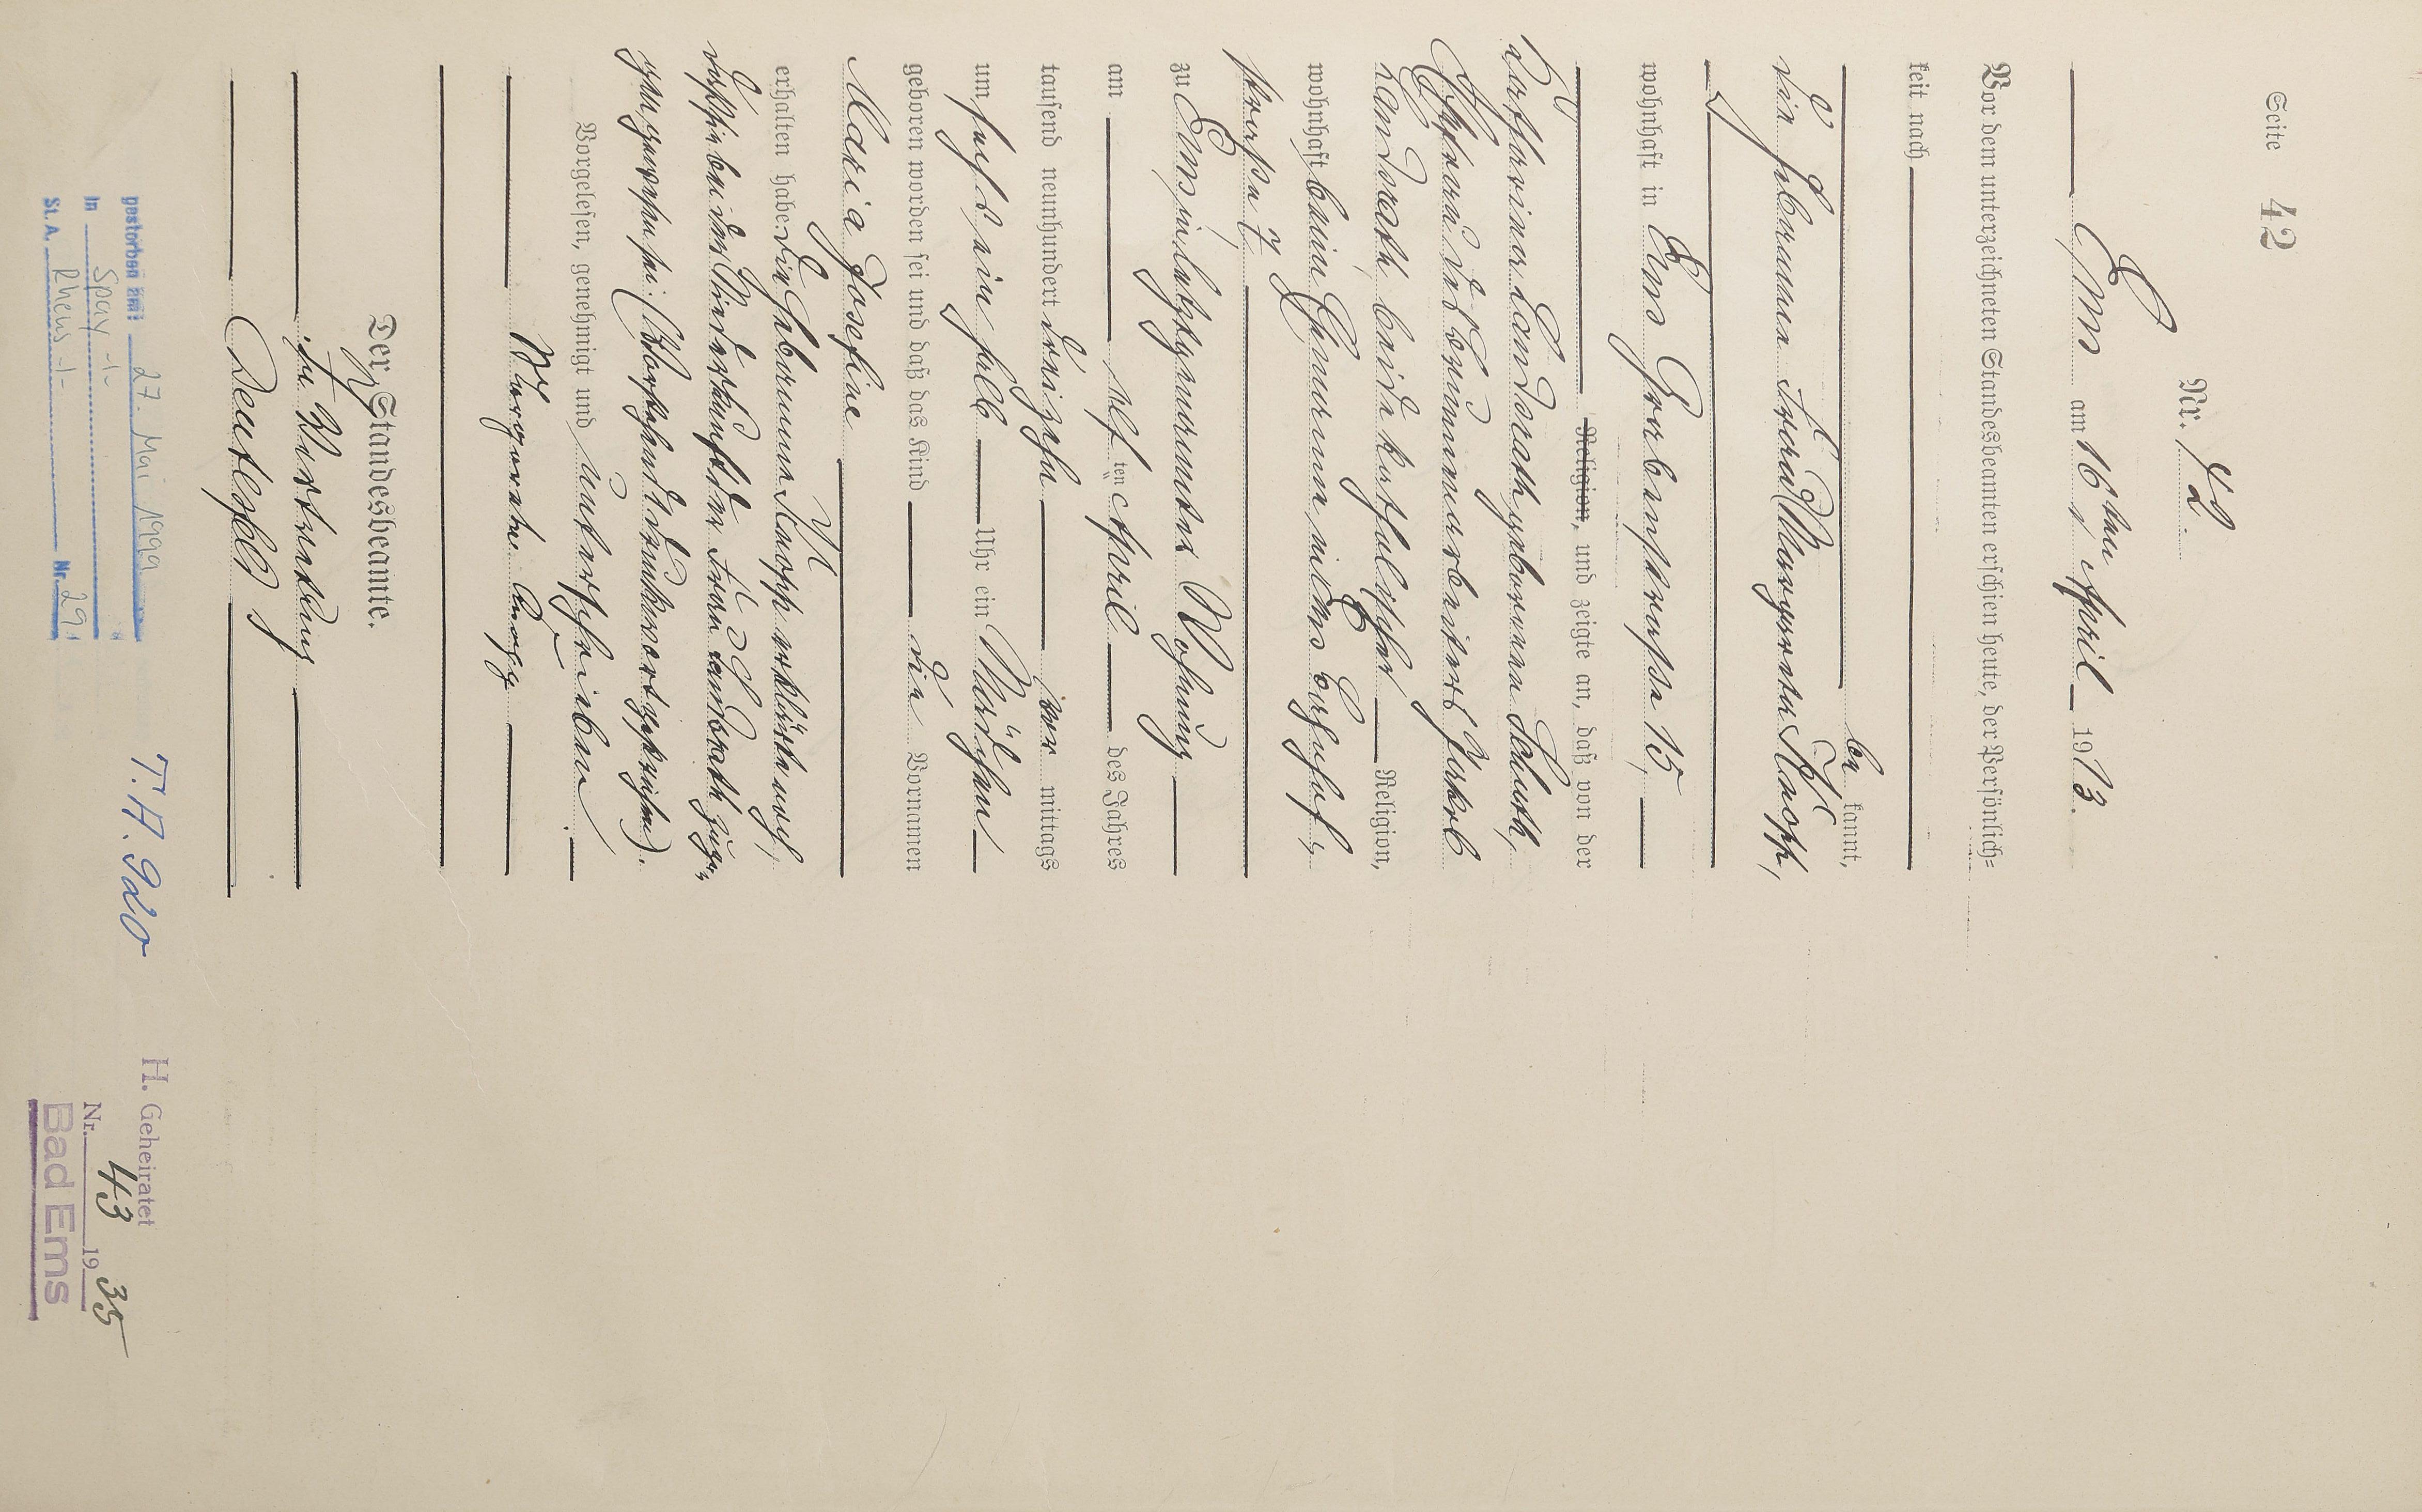 Seite 42
Nr. 42.
Ems am 16ten April 1913.
Vor dem unterzeichneten Standesbeamten erschien heute, der Persönlich-
keit nach
be kannt,
die Hebamme Frau Margarete Knopp,
wohnhaft in Ems Grabenstrasse 15,
Religion, und zeigte an, daß von der
Katharina Landrath geborenen Schuth,
Ehefrau des Brunnenarbeiters Jakob
Landrath, beide katholischer Religion,
wohnhaft beim Ehemann in Ems Bahnhof-
strasse 7,
zu Ems in letztgenannter Wohnung
am elf ten April des Jahres
tausend neunhundert dreizehn vor mittags
um sechs ein halb Uhr ein Mädchen
geboren worden sei und daß das Kind die Vornamen
Maria Josefine
erhalten habe. Die Hebamme Knopp erklärte noch,
daß sie bei der Niederkunft der Frau Landrath zuge-
gen gewesen sei. (Vorstehend Druckwort gestrichen).
Vorgelesen, genehmigt und unterschrieben.
Margarete Knopp
Der Standesbeamte.
In Vertretung
Deutesfeld
gestorben am: 27. Mai 1999
in Spay -/-
St. A. Rhens -/- Nr. 29
T. A. 920
H. Geheiratet
Nr. 43 19 35
Bad Ems